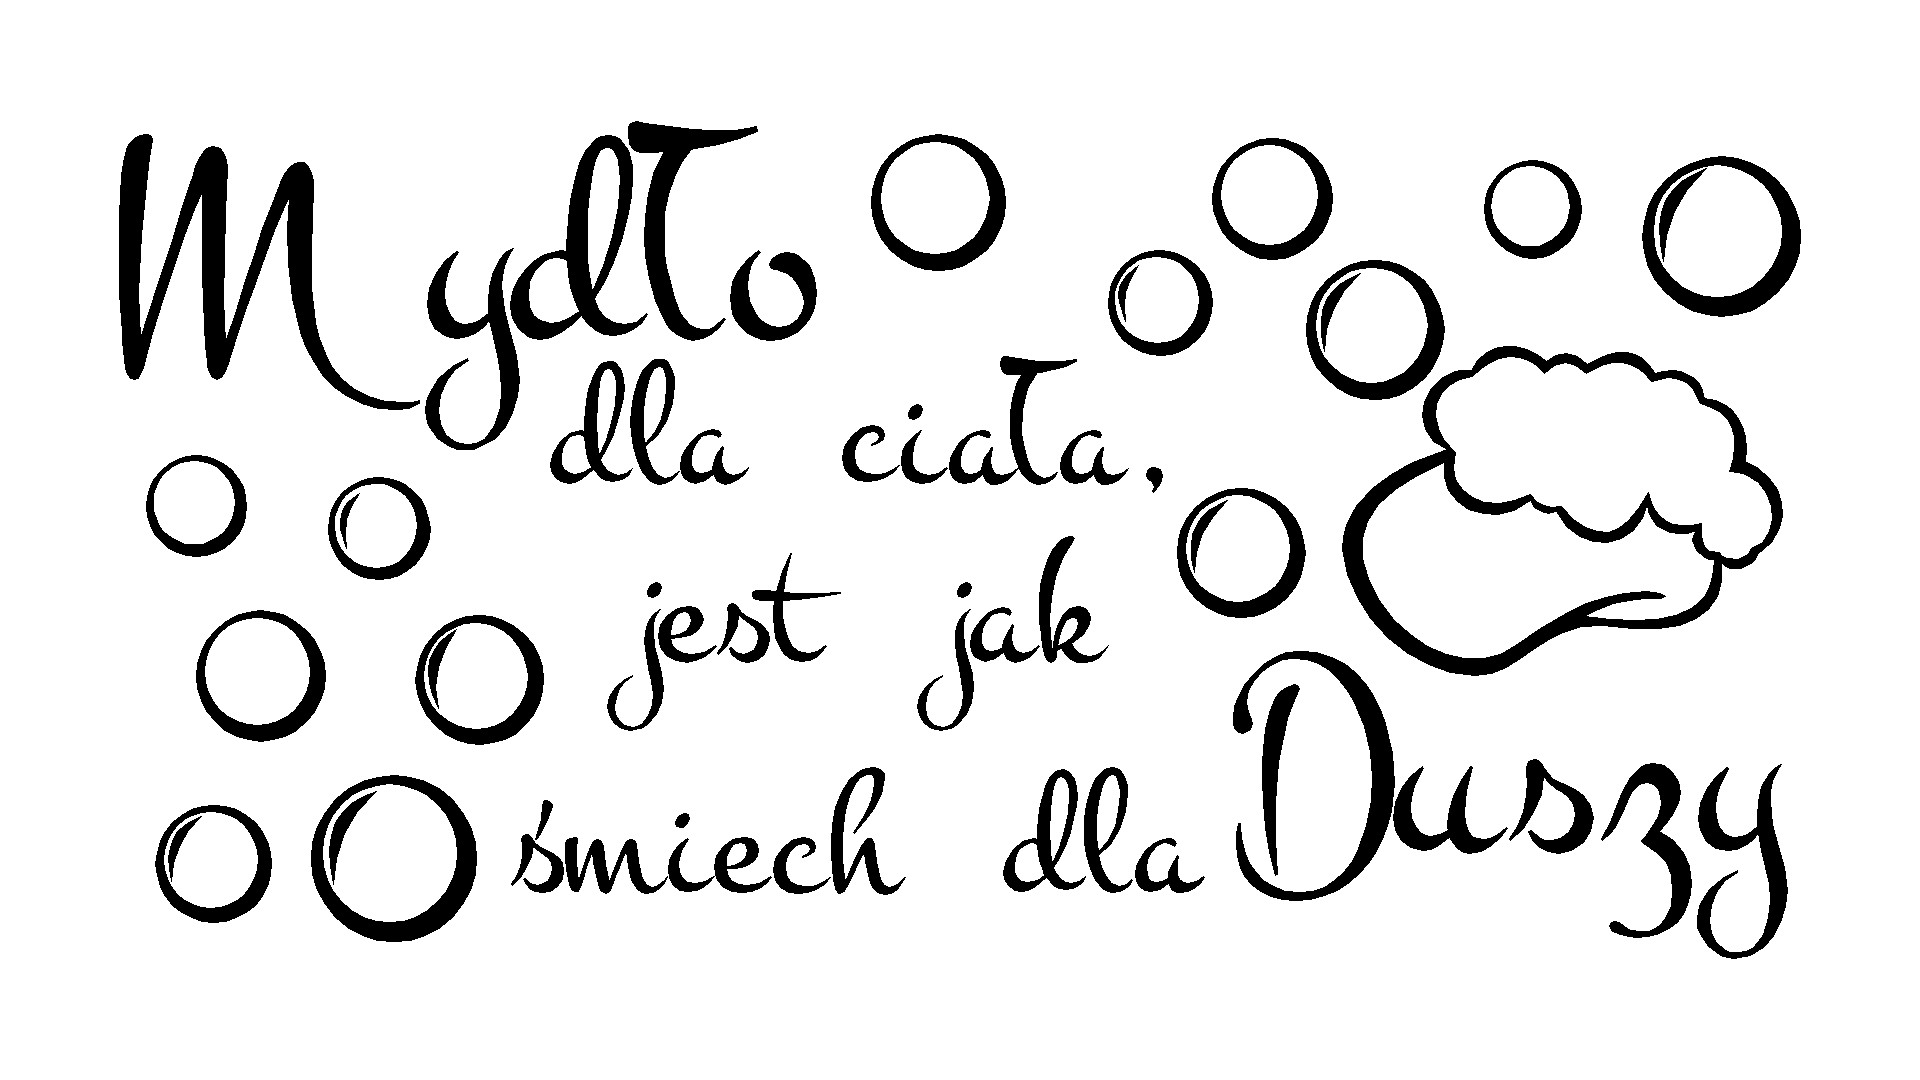 Mydło
dla ciała,
jest jak
śmiech dla Duszy